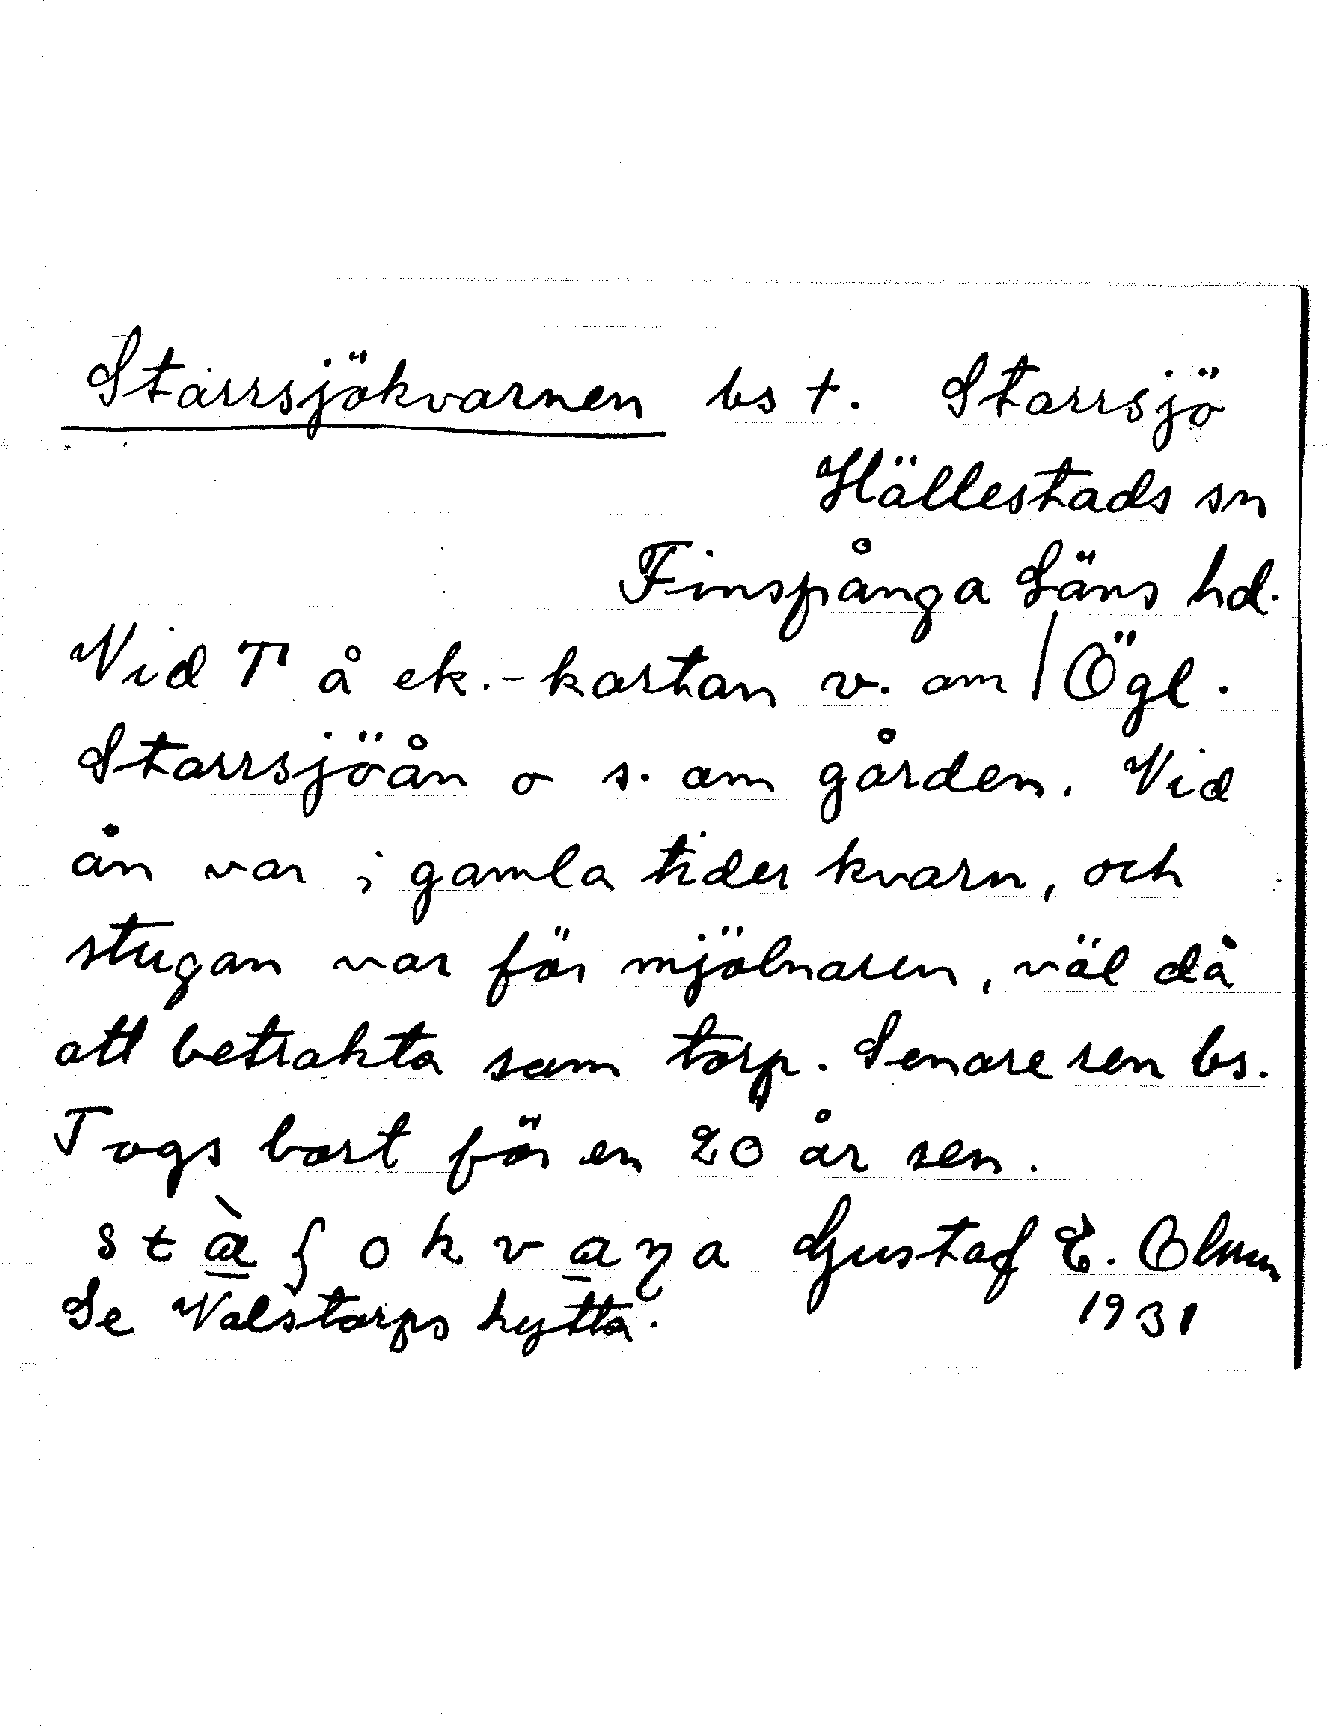 Starrsjökvarnen bs t. Starrsjö
Hällestads sn
Finspånga Läns hd.
Vid T å ek.-kartan v. om / Ögl.
Starrsjöån o s. om gården. Vid
ån var i gamla tider kvarn, och
stugan var för mjölnaren, väl då
att betrakta som torp. Senare ren bs.
Togs bort för en 20 år sen.
Gustaf E. Olsson
Se Valstorps hytta. 1931